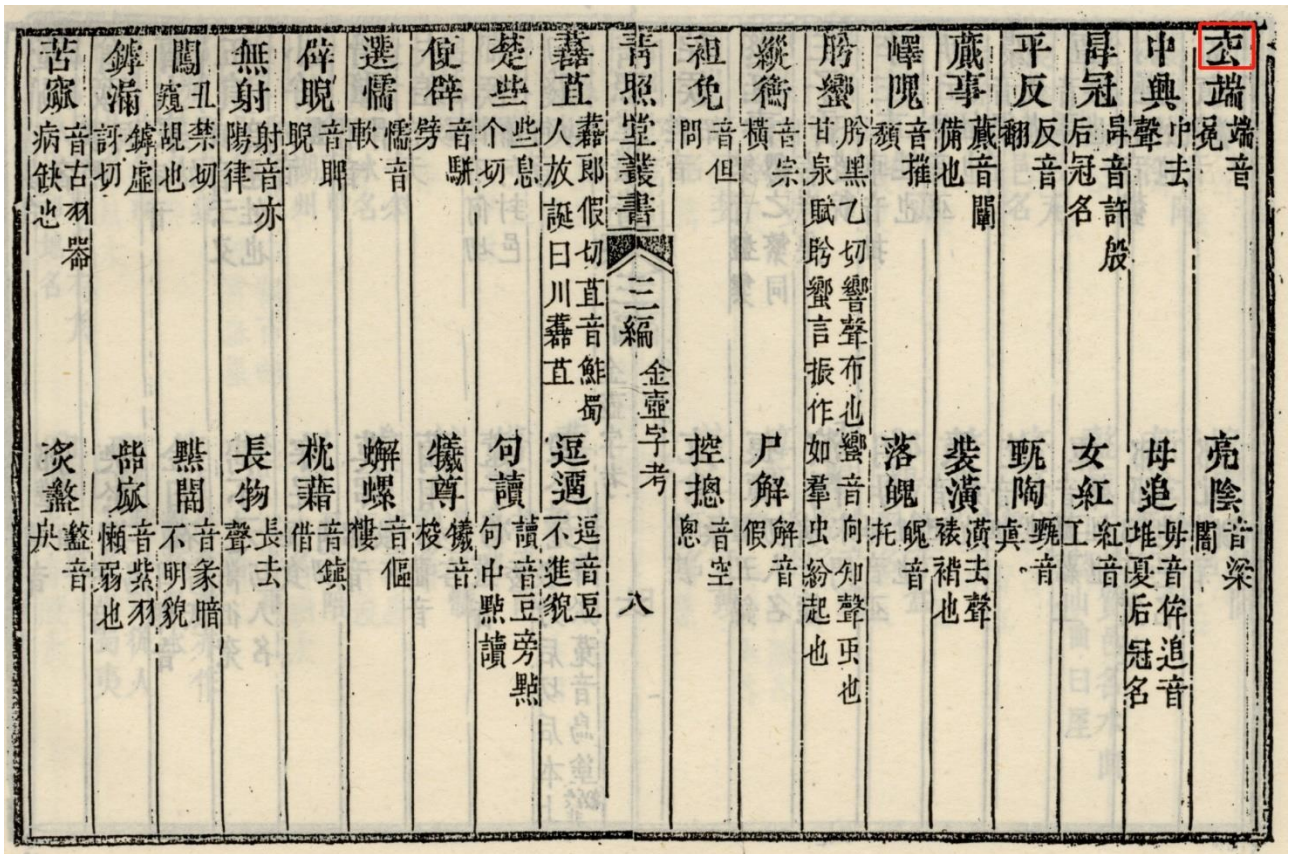 玄端 端音冕 亮陰 音梁闇
中興 中去聲 毋追 毋音侔追音堆夏后冠名
冔冠 冔音許殷后冠名 女紅 紅音工
平反 反音翻 甄陶 甄音真
蕆事 蕆音闡備也 裝潢 潢去聲裱褙也
嶧隗 音摧頹 落魄 魄音托
肸蠁 肸黑乙切響聲布也蠁音向知聲虫也甘泉賦肸蠁言振作如羣虫紛起也
縱衡 音宗橫 尸解 解音假
袒免 音但問 控揔 音空悤
青照堂叢書 三編 金壺字考 八
藞苴 藞郎假切苴音鮓蜀人放誕曰川藞苴 逗遛 逗音豆不進貌
楚些 些息个切 句讀 讀音豆旁點句中點讀
便辟 音駢劈 犧尊 犧音梭
選懦 懦音軟 蠏螺 音傴僂
俾睨 音睥睨 枕藉 音鎮借
無射 射音亦陽律 長物 長去聲
闖 丑禁切窺覘也 闇 音彖暗不明貌
罅漏 罅虛訝切 呰窳 音紫羽懶弱也
苦窳 音古羽器病缺也 炙 音